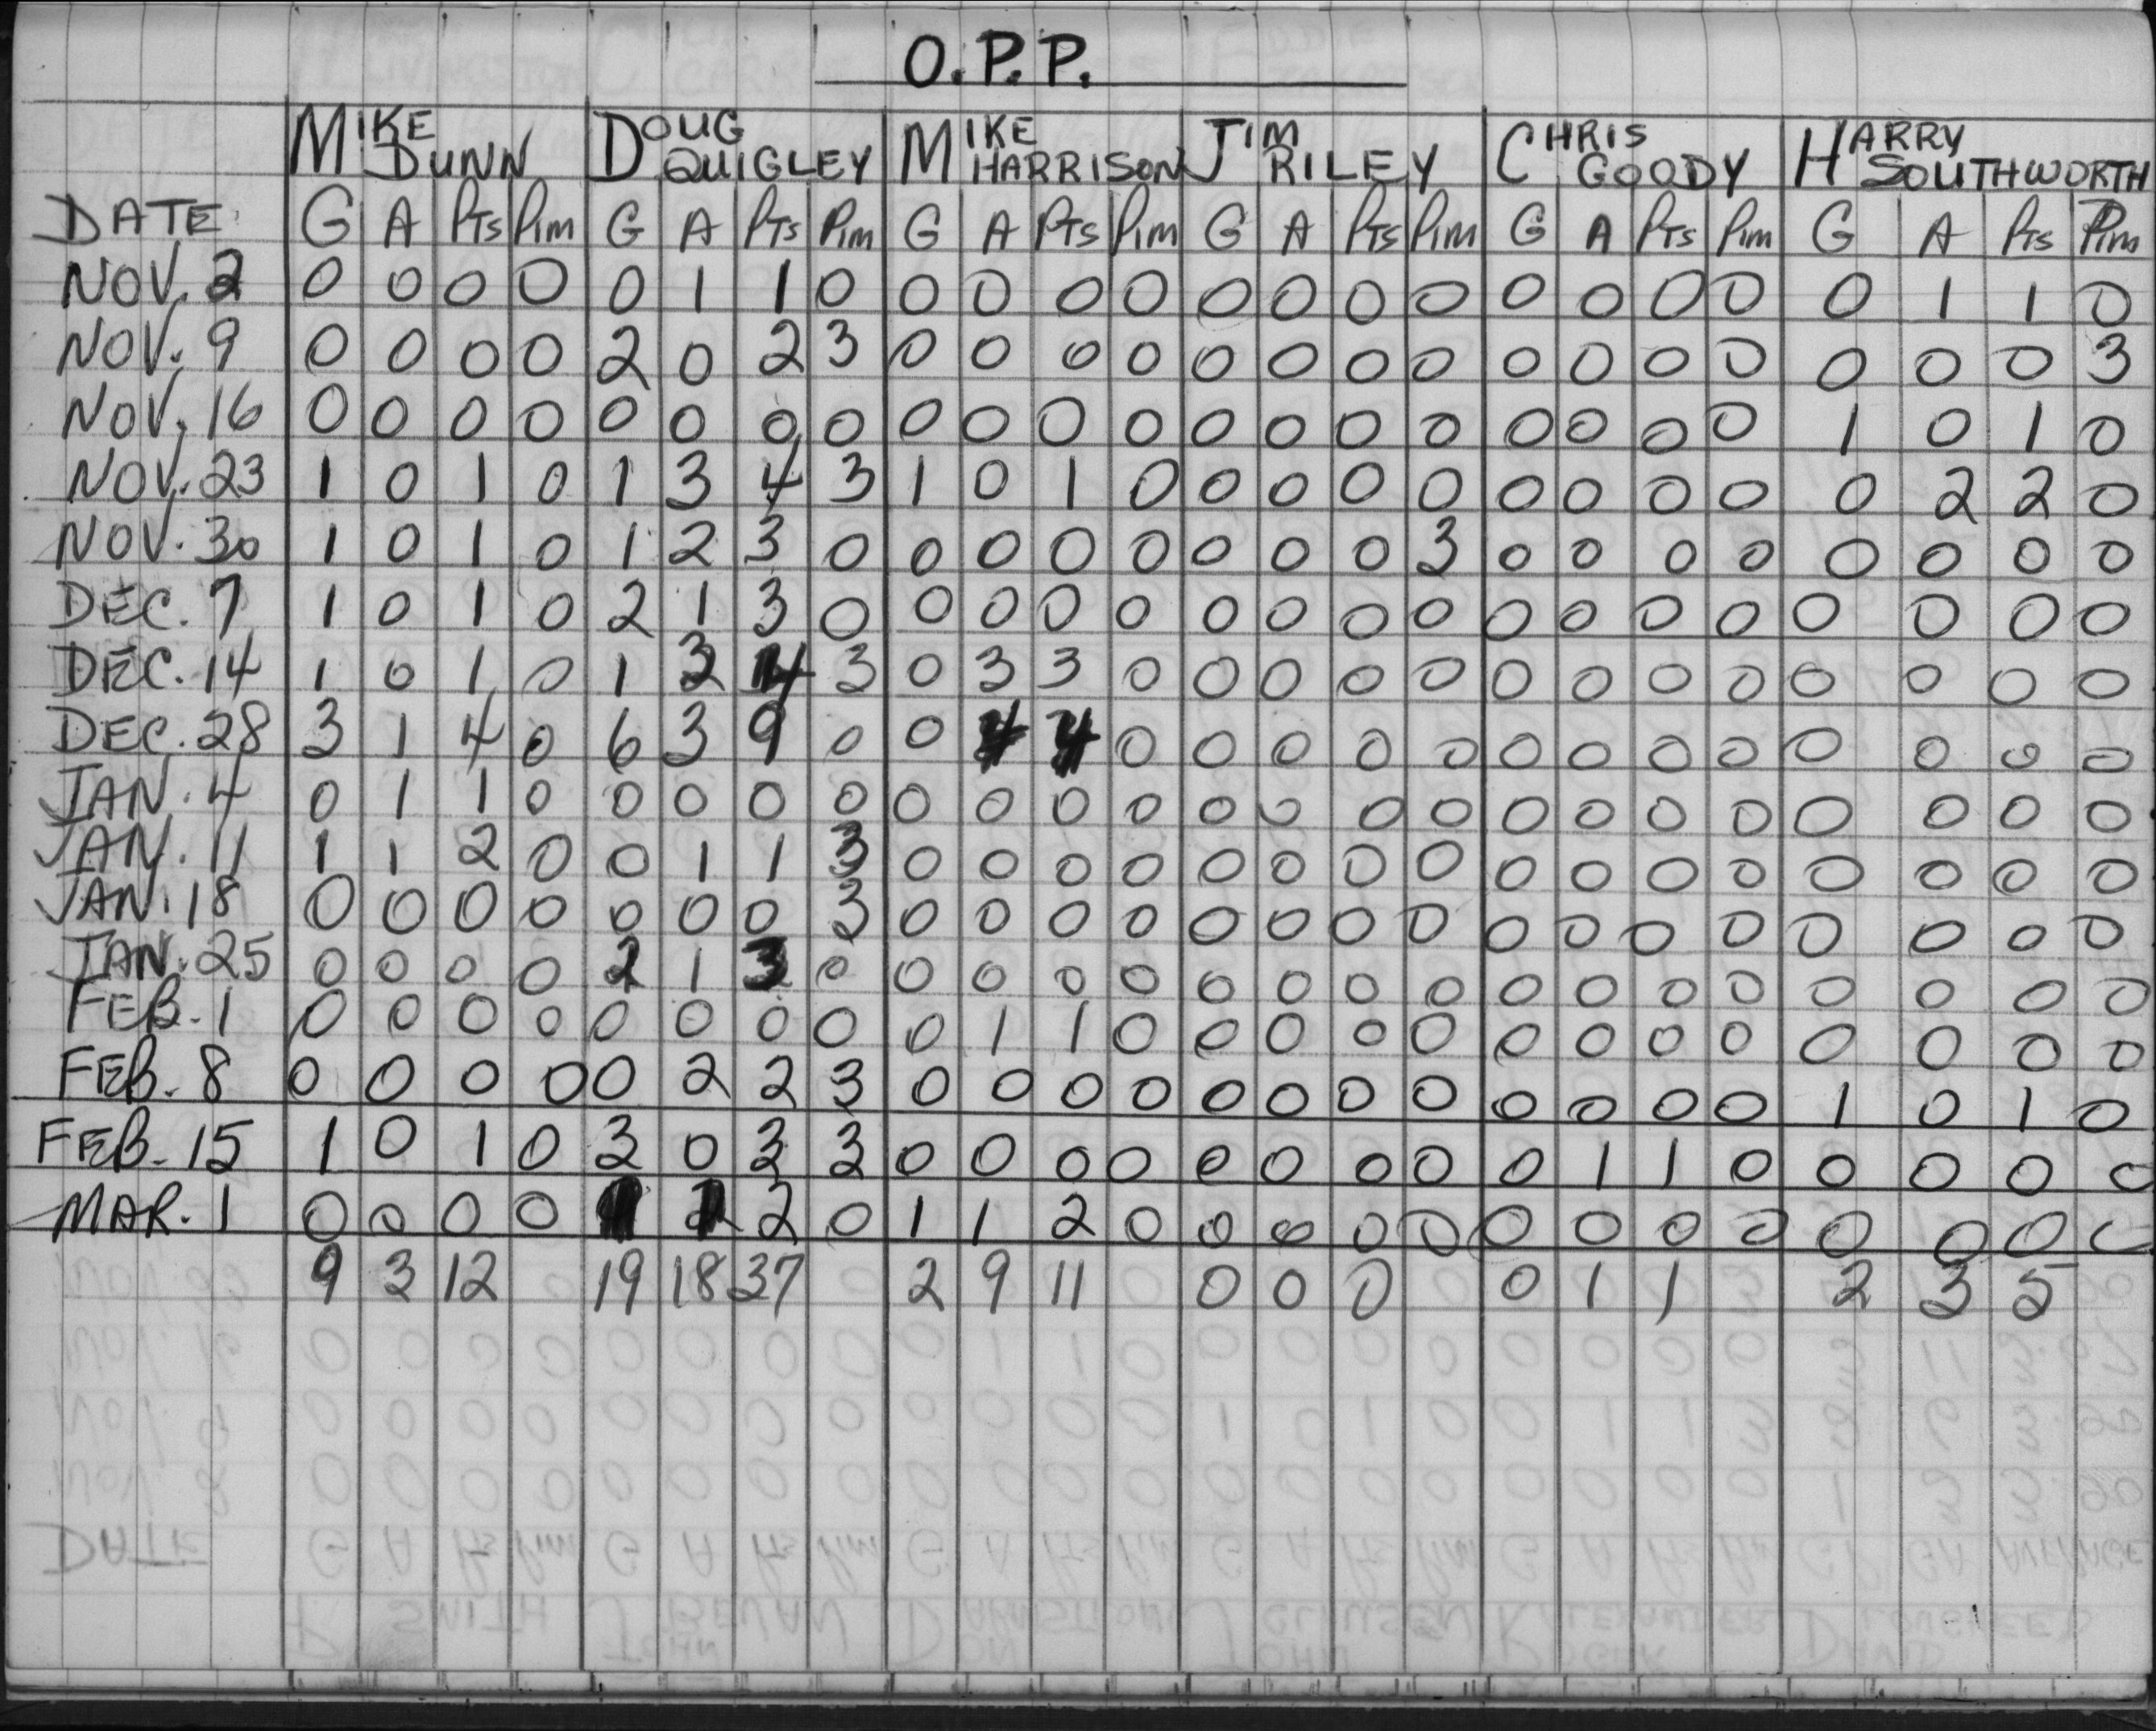 O.P.P.
MIKE DUNN DOUG QUIGLEY MIKE HARRISON JIM RILEY CHRIS GOODY HARRY SOUTHWORTH
DATE G A PTS PIM G A PTS PIM G A PTS PIM G A PTS PIM G A PTS PIM G A PTS PIM
NOV. 2 0 0 0 0 0 1 1 0 0 0 0 0 0 0 0 0 0 0 0 0 0 1 1 0
NOV. 9 0 0 0 0 2 0 2 3 0 0 0 0 0 0 0 0 0 0 0 0 0 0 0 3
NOV. 16 0 0 0 0 0 0 0 0 0 0 0 0 0 0 0 0 0 0 0 0 1 0 1 0
NOV. 23 1 0 1 0 1 3 4 3 1 0 1 0 0 0 0 0 0 0 0 0 0 2 2 0
NOV. 30 1 0 1 0 1 2 3 0 0 0 0 0 0 0 0 3 0 0 0 0 0 0 0 0
DEC. 7 1 0 1 0 2 1 3 0 0 0 0 0 0 0 0 0 0 0 0 0 0 0 0 0
DEC. 14 1 0 1 0 1 3 4 3 0 3 3 0 0 0 0 0 0 0 0 0 0 0 0 0
DEC. 28 3 1 4 0 6 3 9 0 0 4 4 0 0 0 0 0 0 0 0 0 0 0 0 0
JAN. 4 0 1 1 0 0 0 0 0 0 0 0 0 0 0 0 0 0 0 0 0 0 0 0 0
JAN. 11 1 1 2 0 0 1 1 3 0 0 0 0 0 0 0 0 0 0 0 0 0 0 0 0
JAN. 18 0 0 0 0 0 0 0 3 0 0 0 0 0 0 0 0 0 0 0 0 0 0 0 0
JAN. 25 0 0 0 0 2 1 3 0 0 0 0 0 0 0 0 0 0 0 0 0 0 0 0 0
FEB. 1 0 0 0 0 0 0 0 0 0 1 1 0 0 0 0 0 0 0 0 0 0 0 0 0
FEB. 8 0 0 0 0 0 2 2 3 0 0 0 0 0 0 0 0 0 0 0 0 1 0 1 0
FEB. 15 1 0 1 0 3 0 3 3 0 0 0 0 0 0 0 0 0 1 1 0 0 0 0 0
MAR. 1 0 0 0 0 1 1 2 0 1 1 2 0 0 0 0 0 0 0 0 0 0 0 0 0
9 3 12 19 18 37 2 9 11 0 0 0 0 1 1 2 3 5